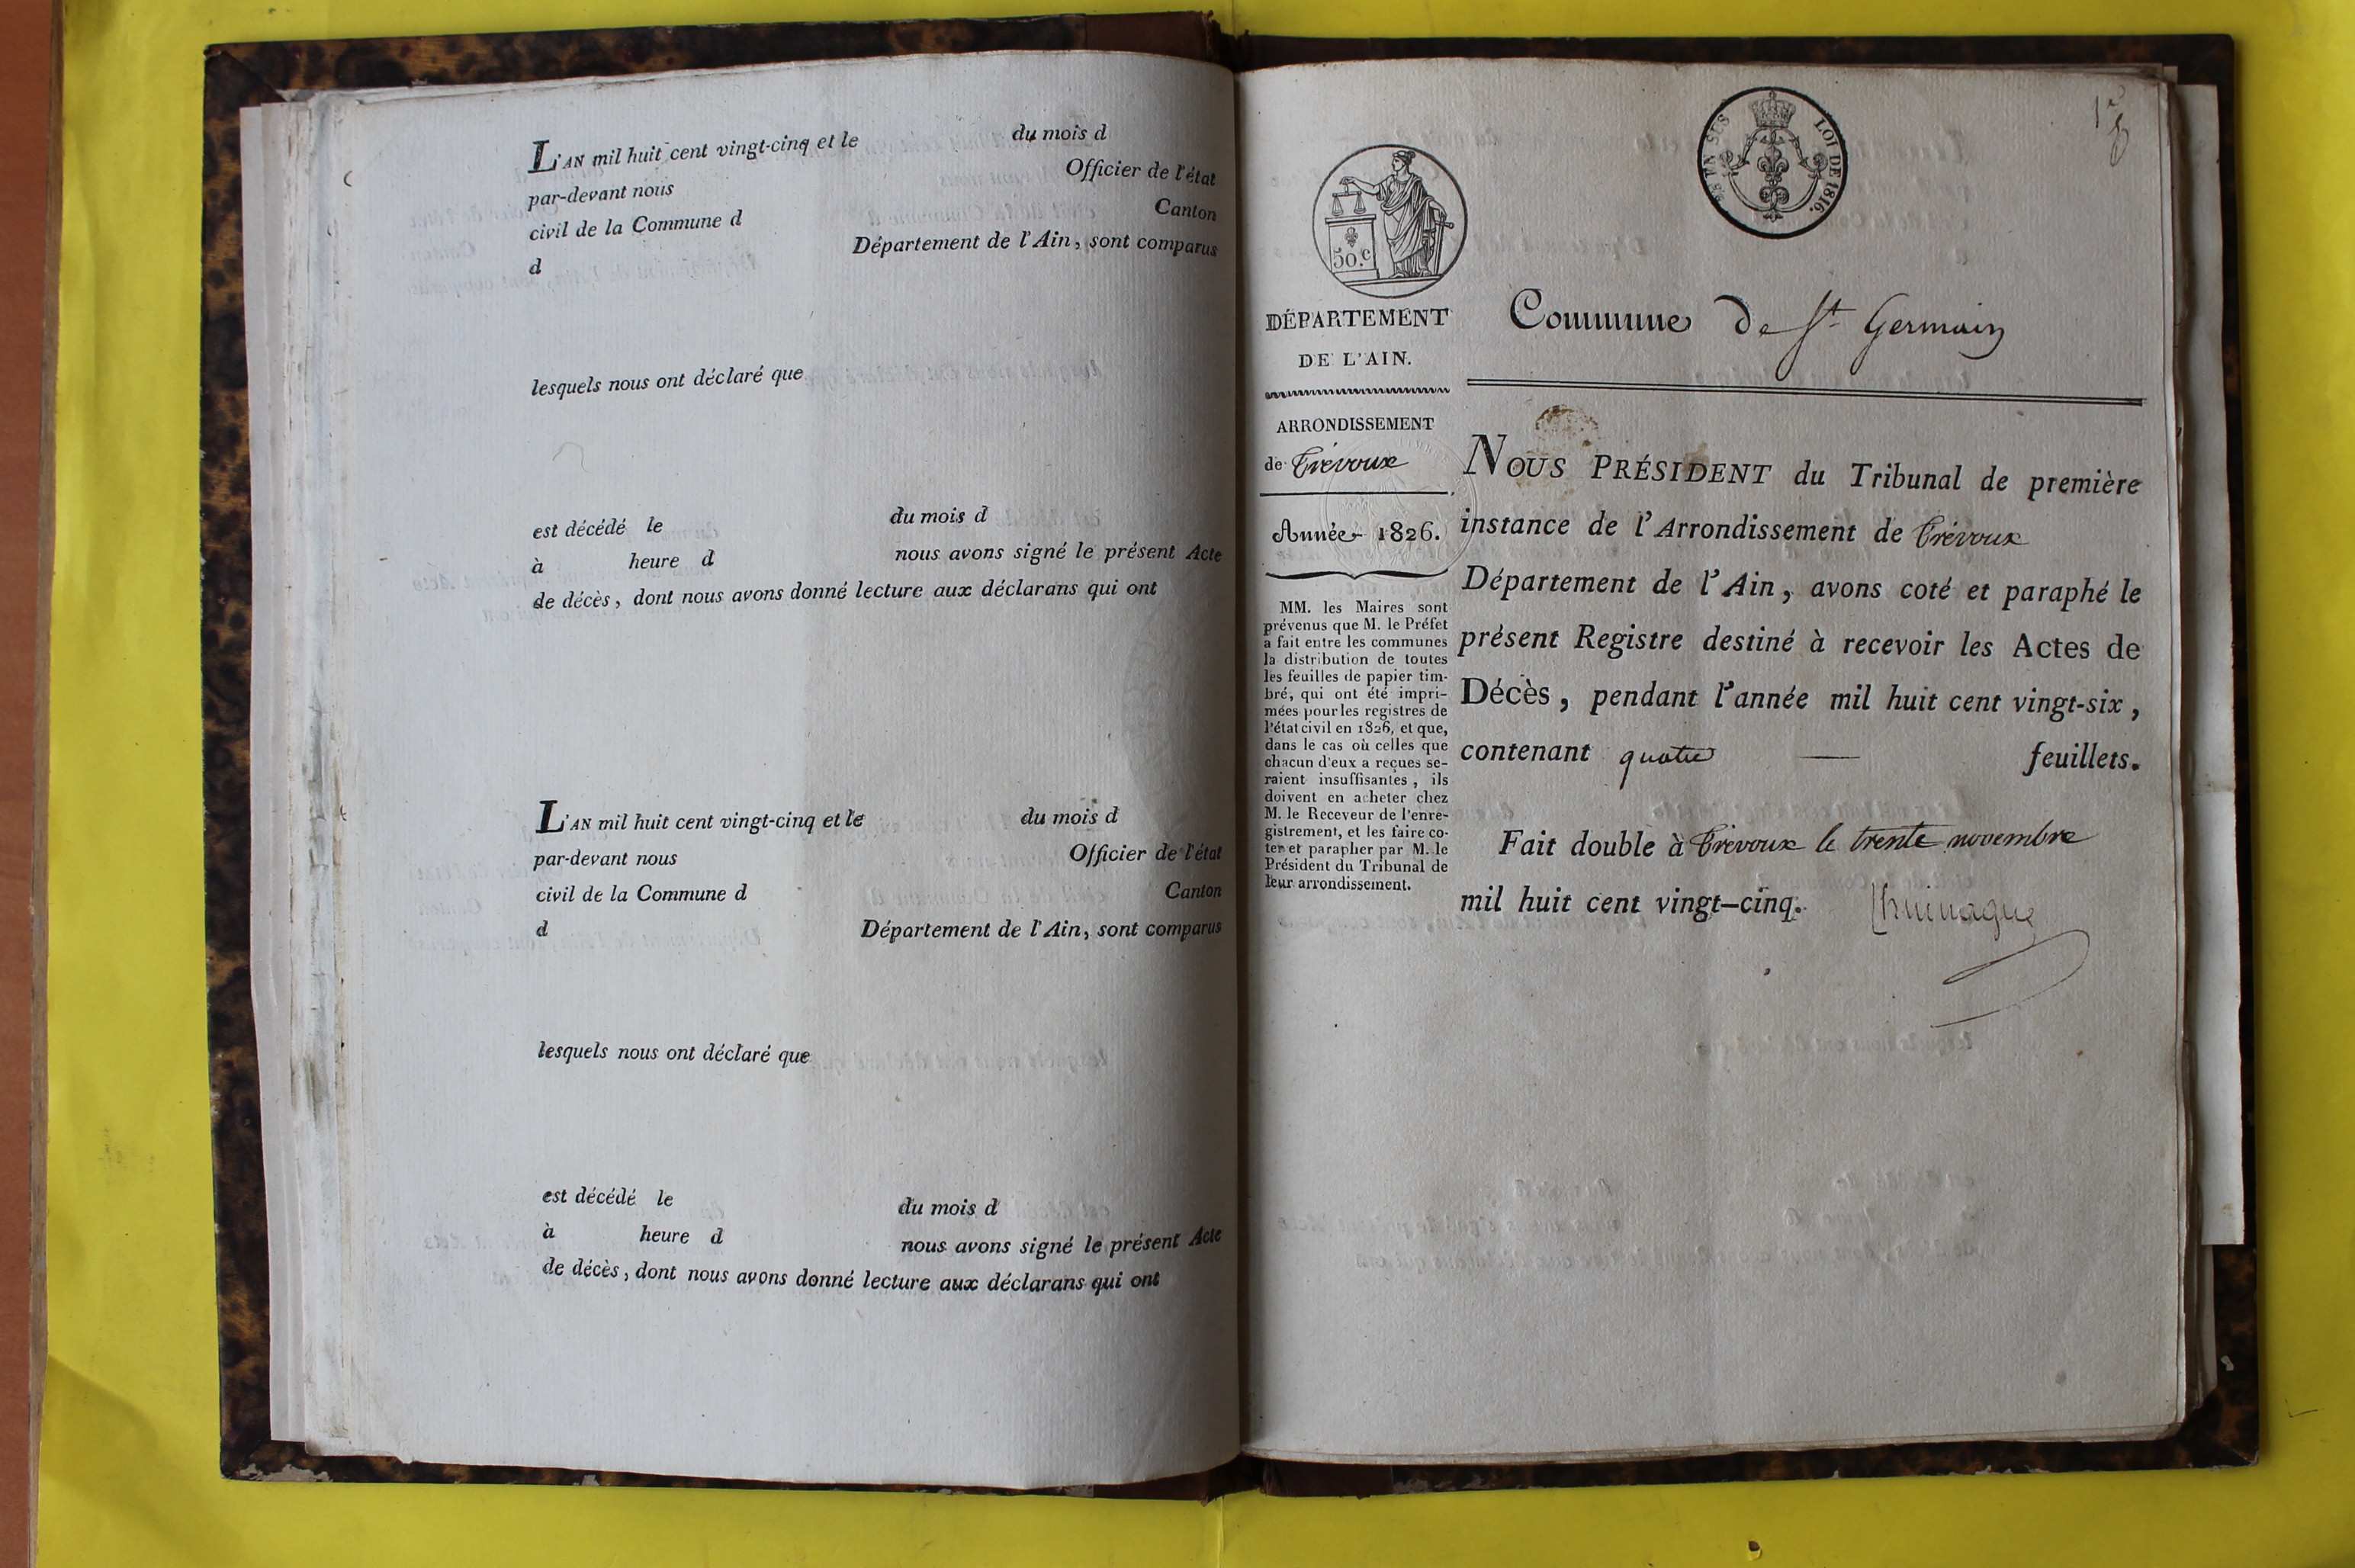 L'AN mil huit cent vingt-cinq et le du mois d
par-devant nous Officier de l'état
civil de la Commune d Canton
d Département de l'Ain, sont comparus
lesquels nous ont déclaré que
est décédé le du mois d
à heure d nous avons signé le présent Acte
de décès, dont nous avons donné lecture aux déclarans qui ont
L'AN mil huit cent vingt-cinq et le du mois d
par-devant nous Officier de l'état
civil de la Commune d Canton
d Département de l'Ain, sont comparus
lesquels nous ont déclaré que
est décédé le du mois d
à heure d nous avons signé le présent Acte
de décès, dont nous avons donné lecture aux déclarans qui ont
50.c
LOI DE 1816.
DÉPARTEMENT
DE L'AIN.
ARRONDISSEMENT
de Trévoux
Année 1826.
MM. les Maires sont
prévenus que M. le Préfet
a fait entre les communes
la distribution de toutes
les feuilles de papier tim-
bré, qui ont été impri-
mées pour les registres de
l'état civil en 1826, et que,
dans le cas où celles que
chacun d'eux a reçues se-
raient insuffisantes, ils
doivent en acheter chez
M. le Receveur de l'enre-
gistrement, et les faire co-
ter et parapher par M. le
Président du Tribunal de
leur arrondissement.
Commune de St Germain
NOUS PRÉSIDENT du Tribunal de première
instance de l'Arrondissement de Trévoux
Département de l'Ain, avons coté et paraphé le
présent Registre destiné à recevoir les Actes de
Décès, pendant l'année mil huit cent vingt-six,
contenant quatre — feuillets.
Fait double à Trévoux le trente novembre
mil huit cent vingt-cinq.